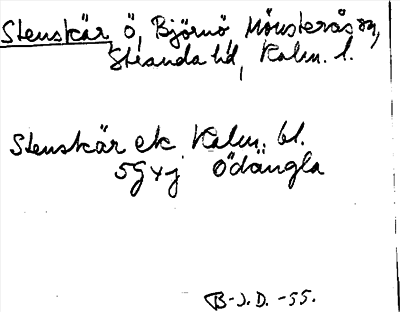 Stenskär ö, Björnö, Mönsterås sn,
Stranda hd, Kalm. l.
Stenskär ek Kalm. bl.
5G4j Ödängla
B-J.D. -55.